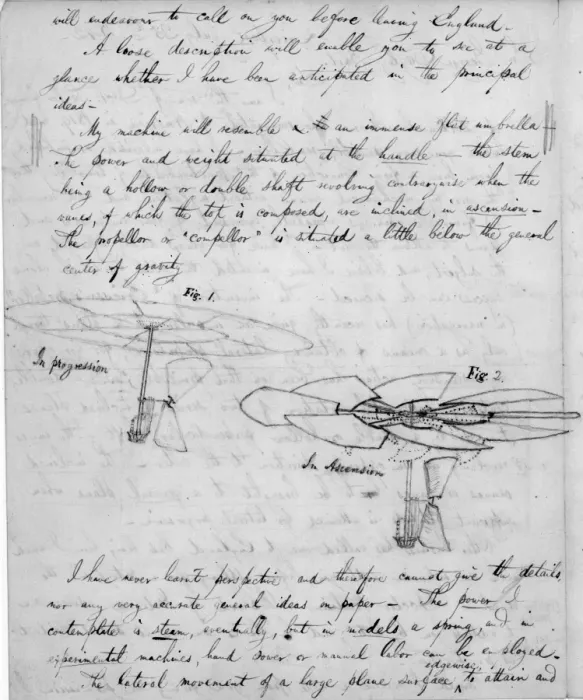 will endeavour to call on you before leaving England.
A loose description will enable you to see at a
glance whether I have been anticipated in the principal
ideas -
My machine will resemble an immense flat umbrella -
The power and weight situated at the handle - the stem
being a hollow or double shaft revolving contrarywise when the
vanes, of which the top is composed, are inclined, in ascension -
The propellor or "compellor" is situated a little below the general
center of gravity
Fig. 1.
In progression
Fig. 2.
In Ascension
I have never learnt perspective and therefore cannot give the details,
nor any very accurate general ideas on paper - The power I
contemplate is steam, eventually, but in models a spring, and in
experimental machines, hand power or manual labor can be employed -
edgewise
The lateral movement of a large plane surface, to attain and